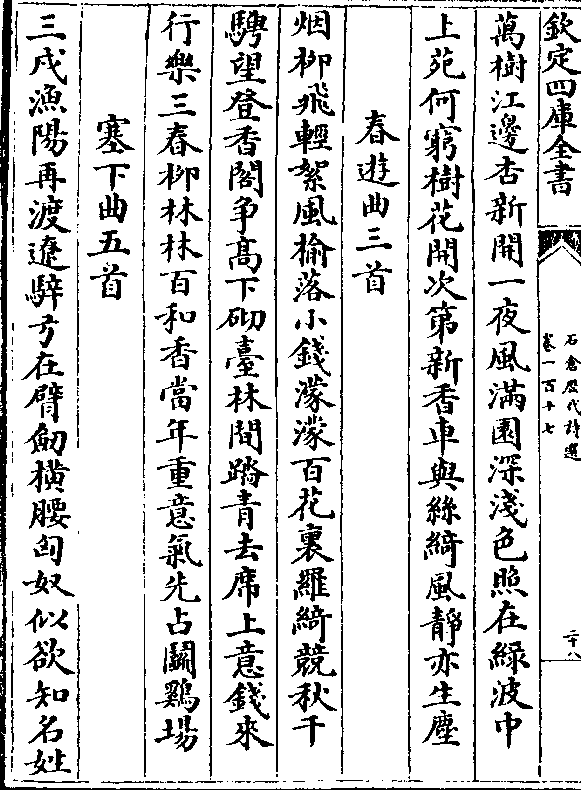 欽定四庫全書
石倉歷代詩選
卷一百十七
二十八
萬樹江邊杏新開一夜風滿園深淺色照在綠波中
上苑何窮樹花開次第新香車與絲綺風靜亦生塵
春遊曲三首
烟柳飛輕絮風榆落小錢濛濛百花裏羅綺競秋千
騁望登香閣爭高下砌臺林間踏青去席上意錢來
行樂三春柳林林百和香當年重意氣先占鬭鷄場
塞下曲五首
三戍漁陽再渡遼騂弓在臂劒橫腰匈奴似欲知名姓